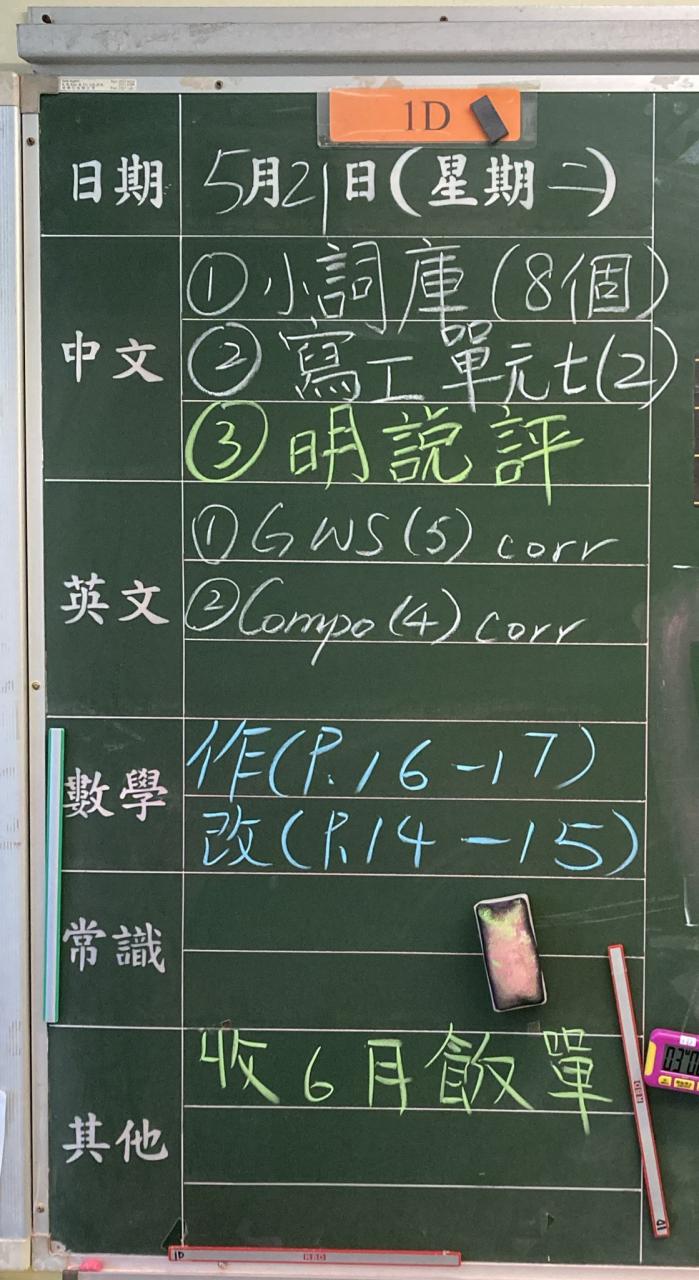 1D
日期 5月21日(星期二)
中文 ①小詞庫(8個)
②寫工單元七(2)
③明説評
英文 ①GWS(5) corr
②Compo(4) corr
數學 作(P.16-17)
改(P.14-15)
常識
其他 收6月飯單
1D
1D